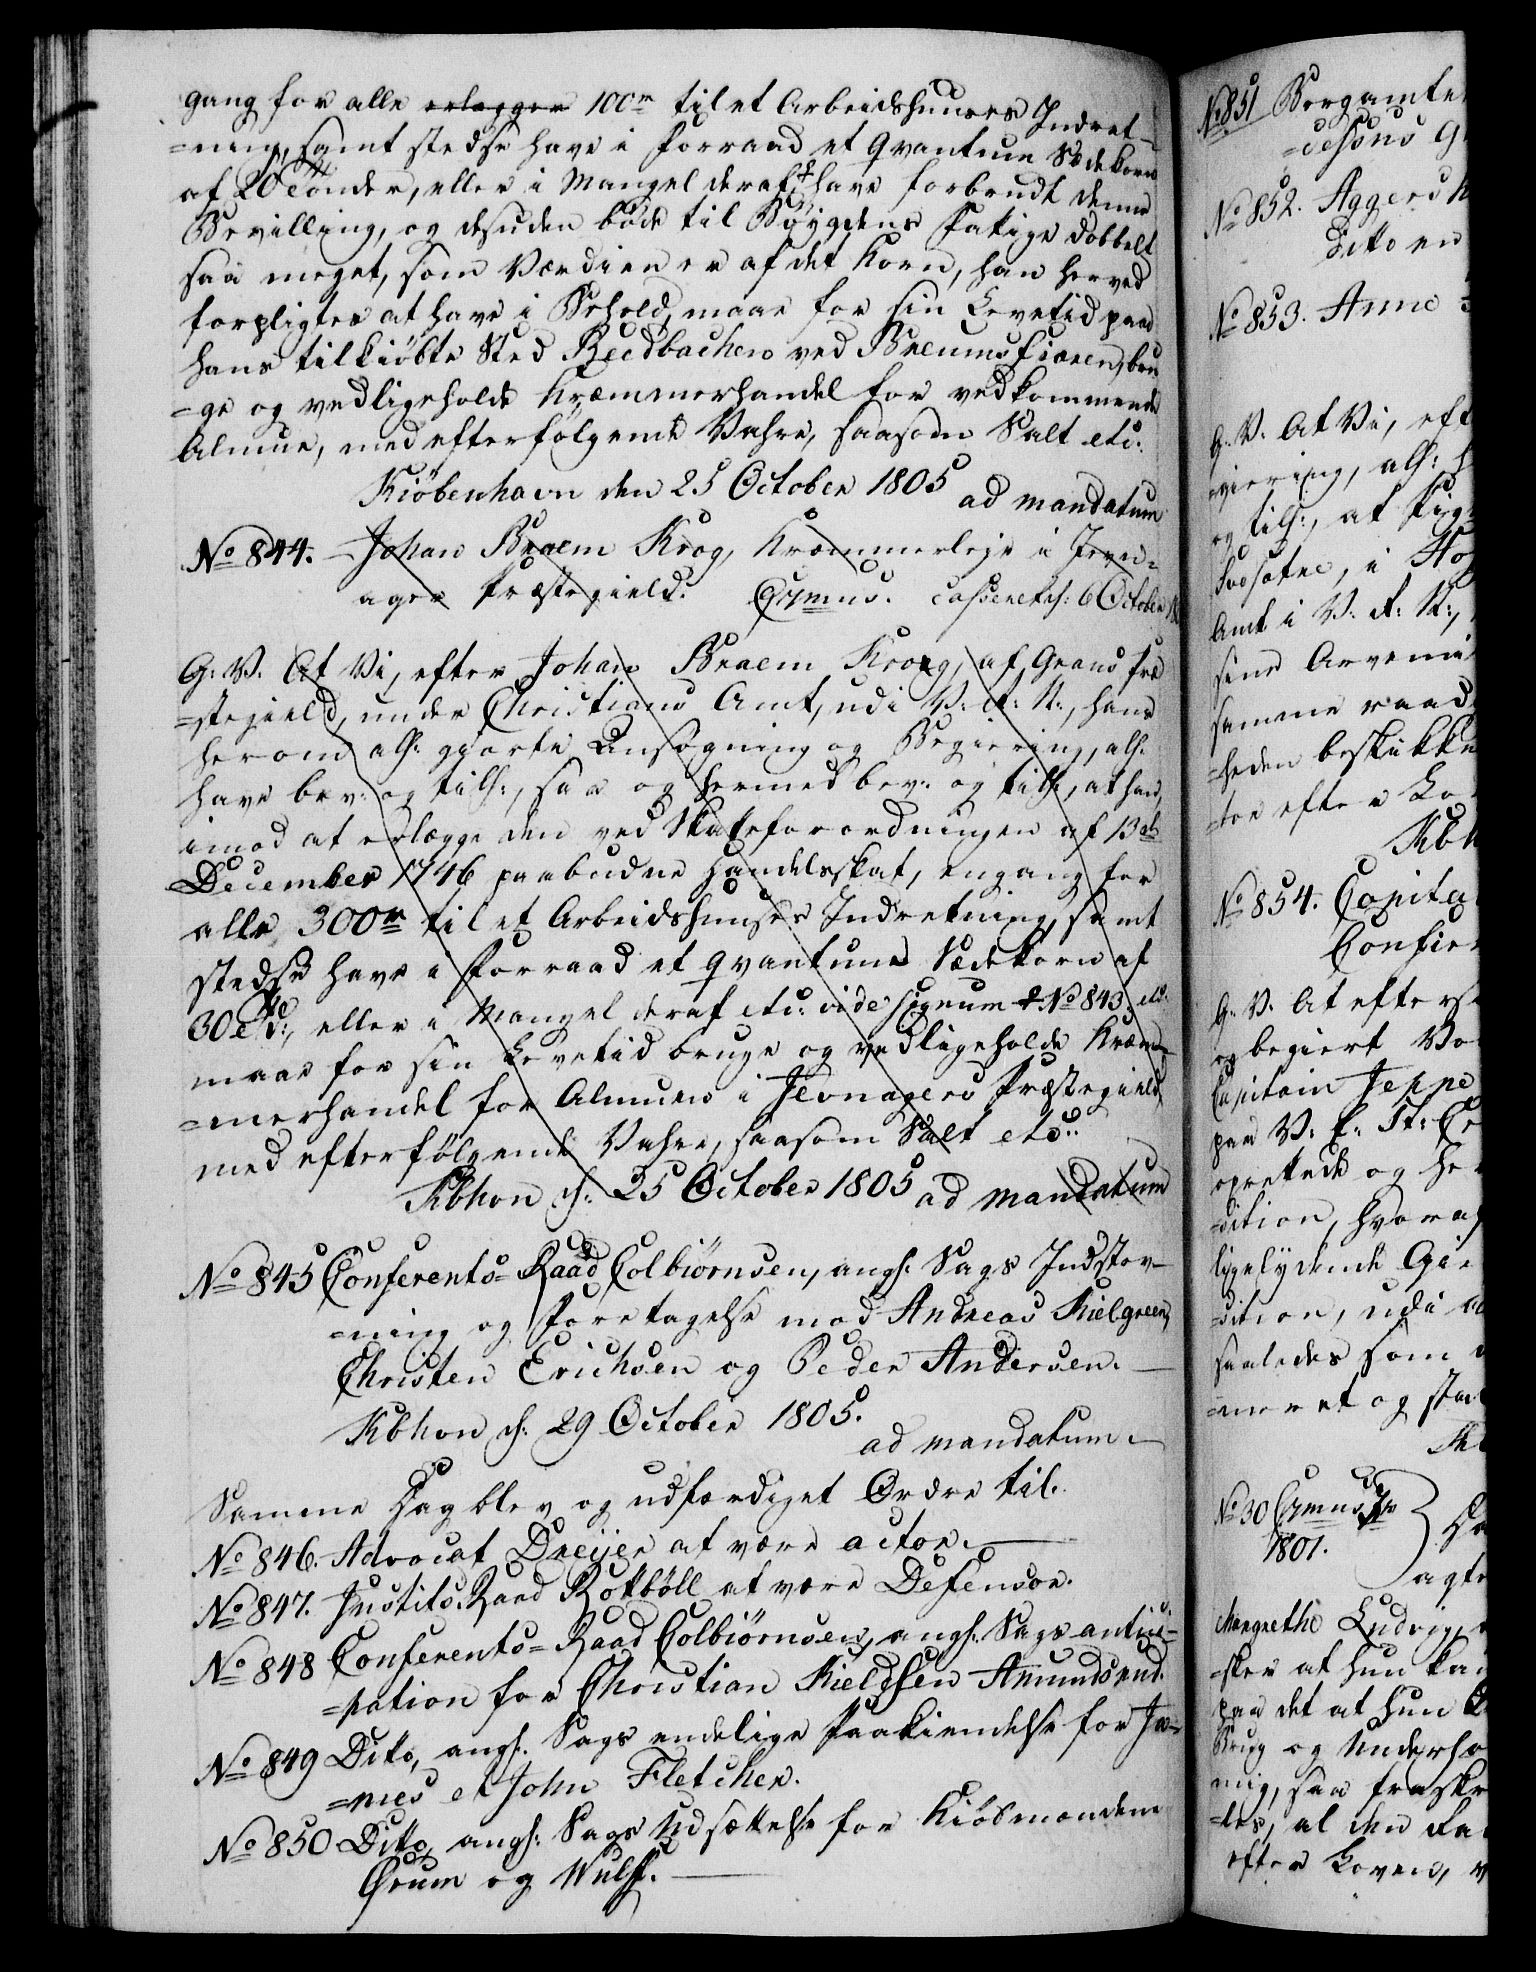 gang for alle erlegger 100 rd til et Arbeidshuuses Indret-
=ning, samt stedse have i Forraad et Qvantum Sædekorn
af 20 Tønder, eller i Mangel deraf have forbrudt denne
Bevilling, og desuden bøde til Bøygdens Fattige dobbelt
saa meget, som Værdien er af det Korn, han herved
forpligtes at have i Behold, maae for sin Levetid paa
hans tilkiøbte Sted Reedbachen ved Breums Fiæren, bru
=ge og vedligeholde Kræmmerhandel for vedkommende
Almue, med efterfølgende Vahre, saasom Salt etc.
Kiøbenhavn den 25 October 1805 ad mandatum
No 844. Johan Braem Krog, Kræmmerleje i Jevn-
ager Præstegield. casseret d: 6 October
G. V. At Vi, efter Johan Braem Krog, af Grans Præ
=stegield, under Christians Amt, udi V: R: N:, hans
herom all: giorte Ansøgning og Begiering, all:
have bev: og till:, saa og hermed bev: og till:, at han,
imod at erlægge den ved Skatteforordningen af 13de
December 1746 paabudne Handelsskat, engang for
alle 300 rd til et Arbeidshuuses Indretning, samt
stedse have i Forraad et Qvantum Sædekorn af
30 Td:, eller i Mangel deraf etc: vide signum No 843, etc:
maae for sin Levetid bruge og vedligeholde Kræm-
=merhandel for Almuen i Jevnagers Præstegield,
med efterfølgende Vahre, saasom Salt etc:
Kbhvn d: 25 October 1805 ad mandatum
No 845 Conferents=Raad Colbiørnsen, angl: Sags Indstev-
=ning og Foretagelse mod Andreas Kielgreen,
Christen Erichsen og Peder Andersen.
Kbhvn d: 29 October 1805.
ad mandatum.
Samme Dag blev og udfærdiget Ordre til.
No 846. Advocat Dreijer at være actor.
No 847. Justits Raad Rottbøll at være Defensor.
No 848 Conferents=Raad Colbiørnsen, angl: Sags antici-
=pation for Christian Kieldsen Amundsrud.
No 849 Ditto, angl: Sags endelige Paakiendelse for Ja-
=mes et John Fletcher.
No 850 Ditto, angl: Sags Udsættelse for Kiøbmændene
Ørum og Wulff.
No 851 Bergamte
No 852. Aggers
Ditto en
No 853. Anne
G. V. At Vi, eft
=giering, all:
og till:, at
i
Amt i V: R: N:,
sine Arvemi
samme raad
=heden beskikke
=tor efter Lo
Kbh
No 854. Capita
Confir
G. V. At efter
og begiert Vo
Capitain Jeppe
paa V: E:
oprettede og he
=sition, hvoraf
ligelydende Gie
=sition, udi
saaledes som
=meret og stad
No 30
1801.
agte
Margrethe Ludvig,
=sker at hun kan
paa det at hun
Brug og Underho
mig, saa fraskr
=les, al den
efter Loven,